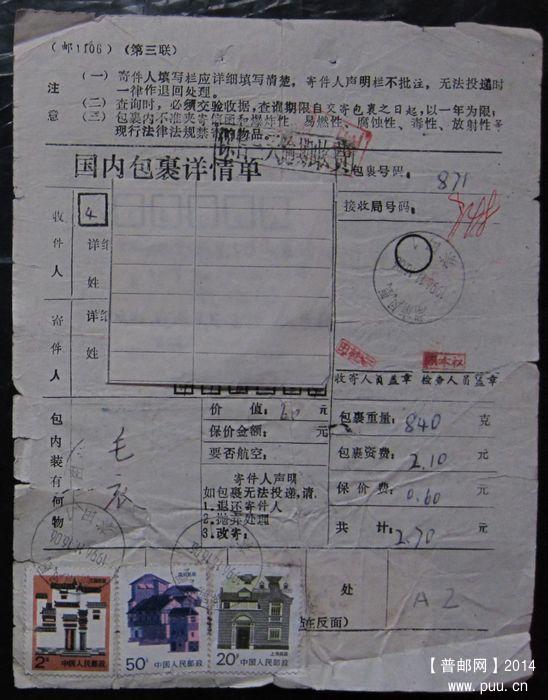 (邮1106)(第三联)
注意
(一)寄件人填写栏应详细填写清楚,寄件人声明栏不批注,无法投递时
一律作退回处理。
(二)查询时,必须交验收据,查询期限自交寄包裹之日起,以一年为限;
(三)包裹内不准夹寄信函和爆炸性、易燃性、腐蚀性、毒性、放射性等
现行法律法规禁寄的物品。
国内包裹详情单
包裹号码:
871
接收局号码:
收件人
4
详细
姓
寄件人
详细
姓
收寄人员盖章 检查人员盖章
包内装有何物
毛衣
价 值: 60 元
保价金额: 元
要否航空:
寄件人声明
如包裹无法投递,请.
1.退还寄件人
2.抛弃处理
3.改寄:
包裹重量: 840 克
包裹资费: 2.10 元
保 价 费: 0.60 元
共 计: 2.70 元
处
A2
贴在反面)
2分
中国人民邮政
50分
中国人民邮政
20分
上海民居
中国人民邮政
【普邮网】2014
www.puu.cn